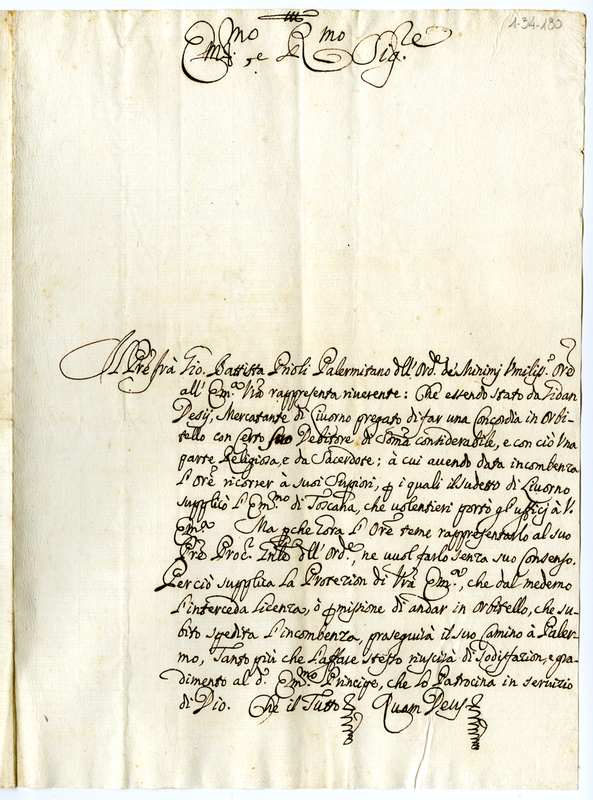 1-34-180
Em.mo, e R.mo Sig.re
Il Prẽ frà Gio. Battista Prioli Palermitano dell'Ord.e de Minimj Umiliss.o Orẽ
all' Em.a Vrã rappresenta riverente: Che essendo stato da
Mercatante di Livorno pregato di far una Concordia in Orbi-
tello con certo suo Debitore di Som̃a considerabile, e con ciò Una
parte Religiosa, e da Sacerdote: à cui avendo data incombenza
l'Orẽ ricorrer à suoi Supiori, p i quali il sudetto di Livorno
supplicò l'Em.mo di Toscana, che volentieri portò gl'ufficj à V.
Em.a Ma pche l'Orẽ teme rappresentarlo al suo
Prẽ Proc.r dell'Ord.e, ne vuol farlo senza suo Consenso.
Perciò supplica la Protezion di Vrã Em.a, che dal medemo
l'interceda licenza, ò pmissione di andar in Orbitello, che su-
bito spedita l'incombenza, proseguirà il suo Camino à Paler-
mo, Tanto più che l'affare stesso riuscirà di sodisfazion, e gra-
dimento al d.o Em.mo Principe, che lo Patrocina in servizio
di Dio. Che il Tutto Quam Deus